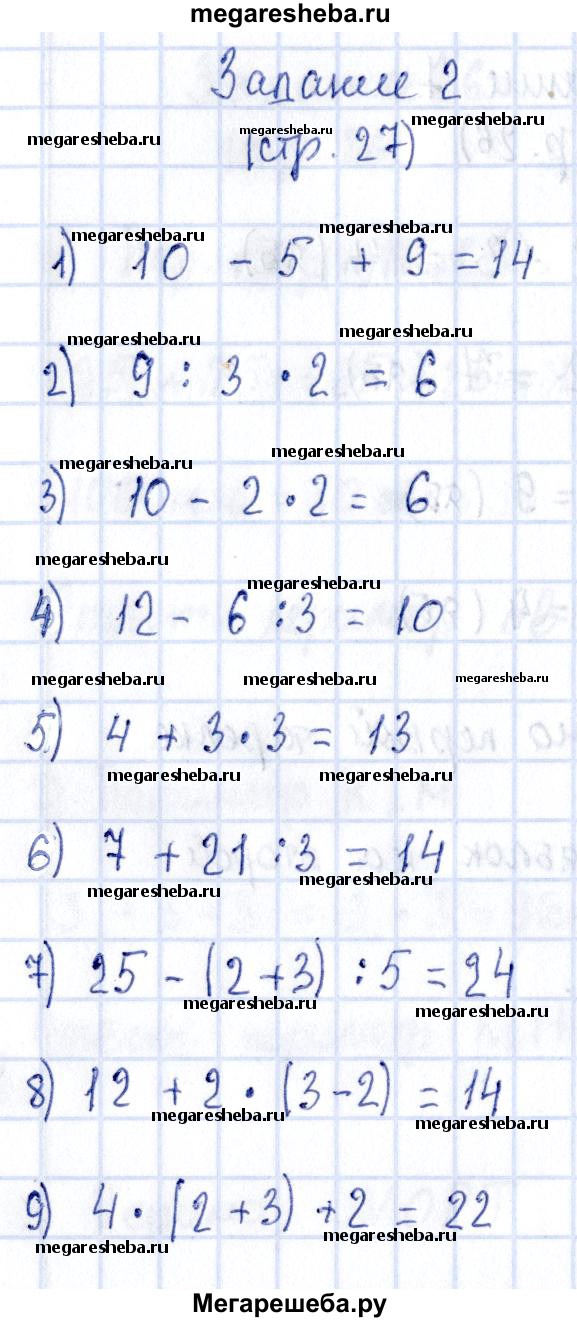 megaresheba.ru
Задание 2
megaresheba.ru megaresheba.ru megaresheba.ru
(стр. 27)
megaresheba.ru megaresheba.ru
1) 10 - 5 + 9 = 14
megaresheba.ru megaresheba.ru
2) 9 : 3 · 2 = 6
megaresheba.ru megaresheba.ru
3) 10 - 2 · 2 = 6
megaresheba.ru megaresheba.ru
4) 12 - 6 : 3 = 10
megaresheba.ru megaresheba.ru megaresheba.ru
5) 4 + 3 · 3 = 13
megaresheba.ru megaresheba.ru
6) 7 + 21 : 3 = 14
megaresheba.ru megaresheba.ru
7) 25 - (2+3) : 5 = 24
megaresheba.ru megaresheba.ru
8) 12 + 2 · (3-2) = 14
megaresheba.ru megaresheba.ru
9) 4 · (2+3) + 2 = 22
megaresheba.ru megaresheba.ru
Мегарешеба.ру